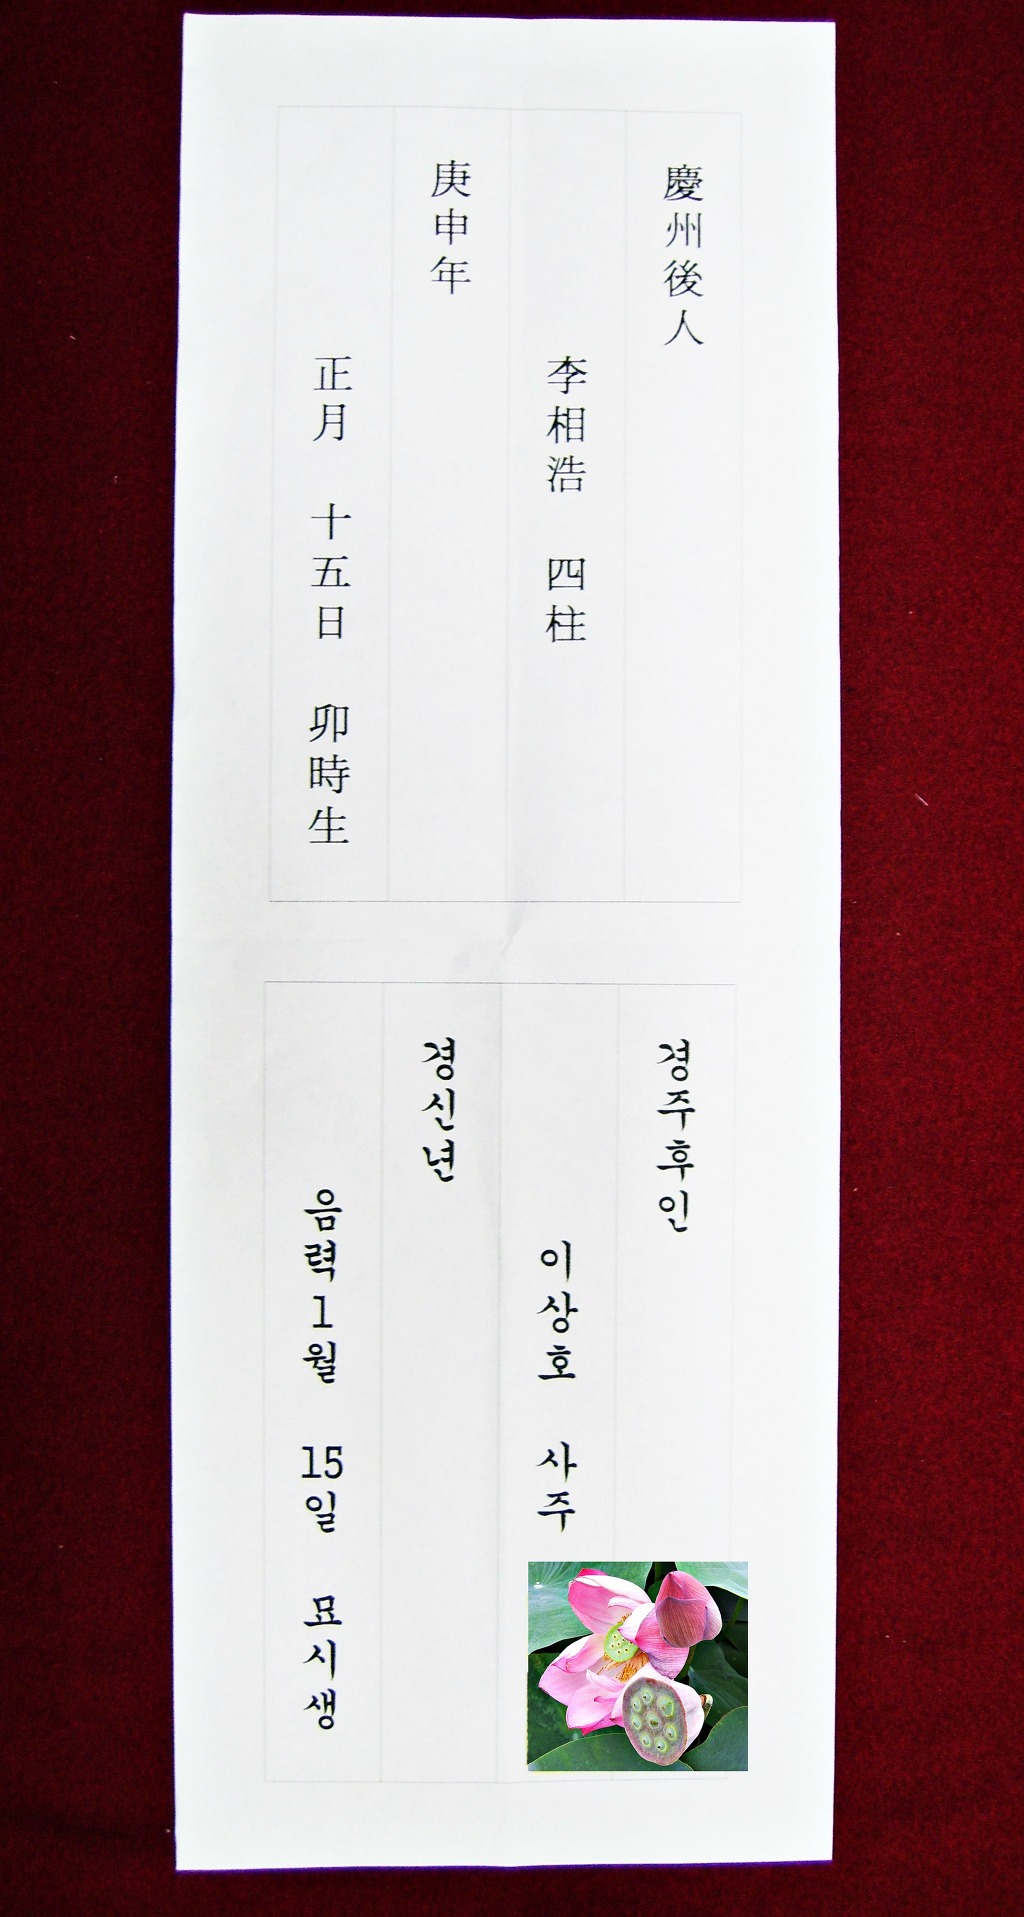 慶州後人
李相浩 四柱
庚申年
正月 十五日 卯時生
경주후인
이상호 사주
경신년
음력1월 15일 묘시생